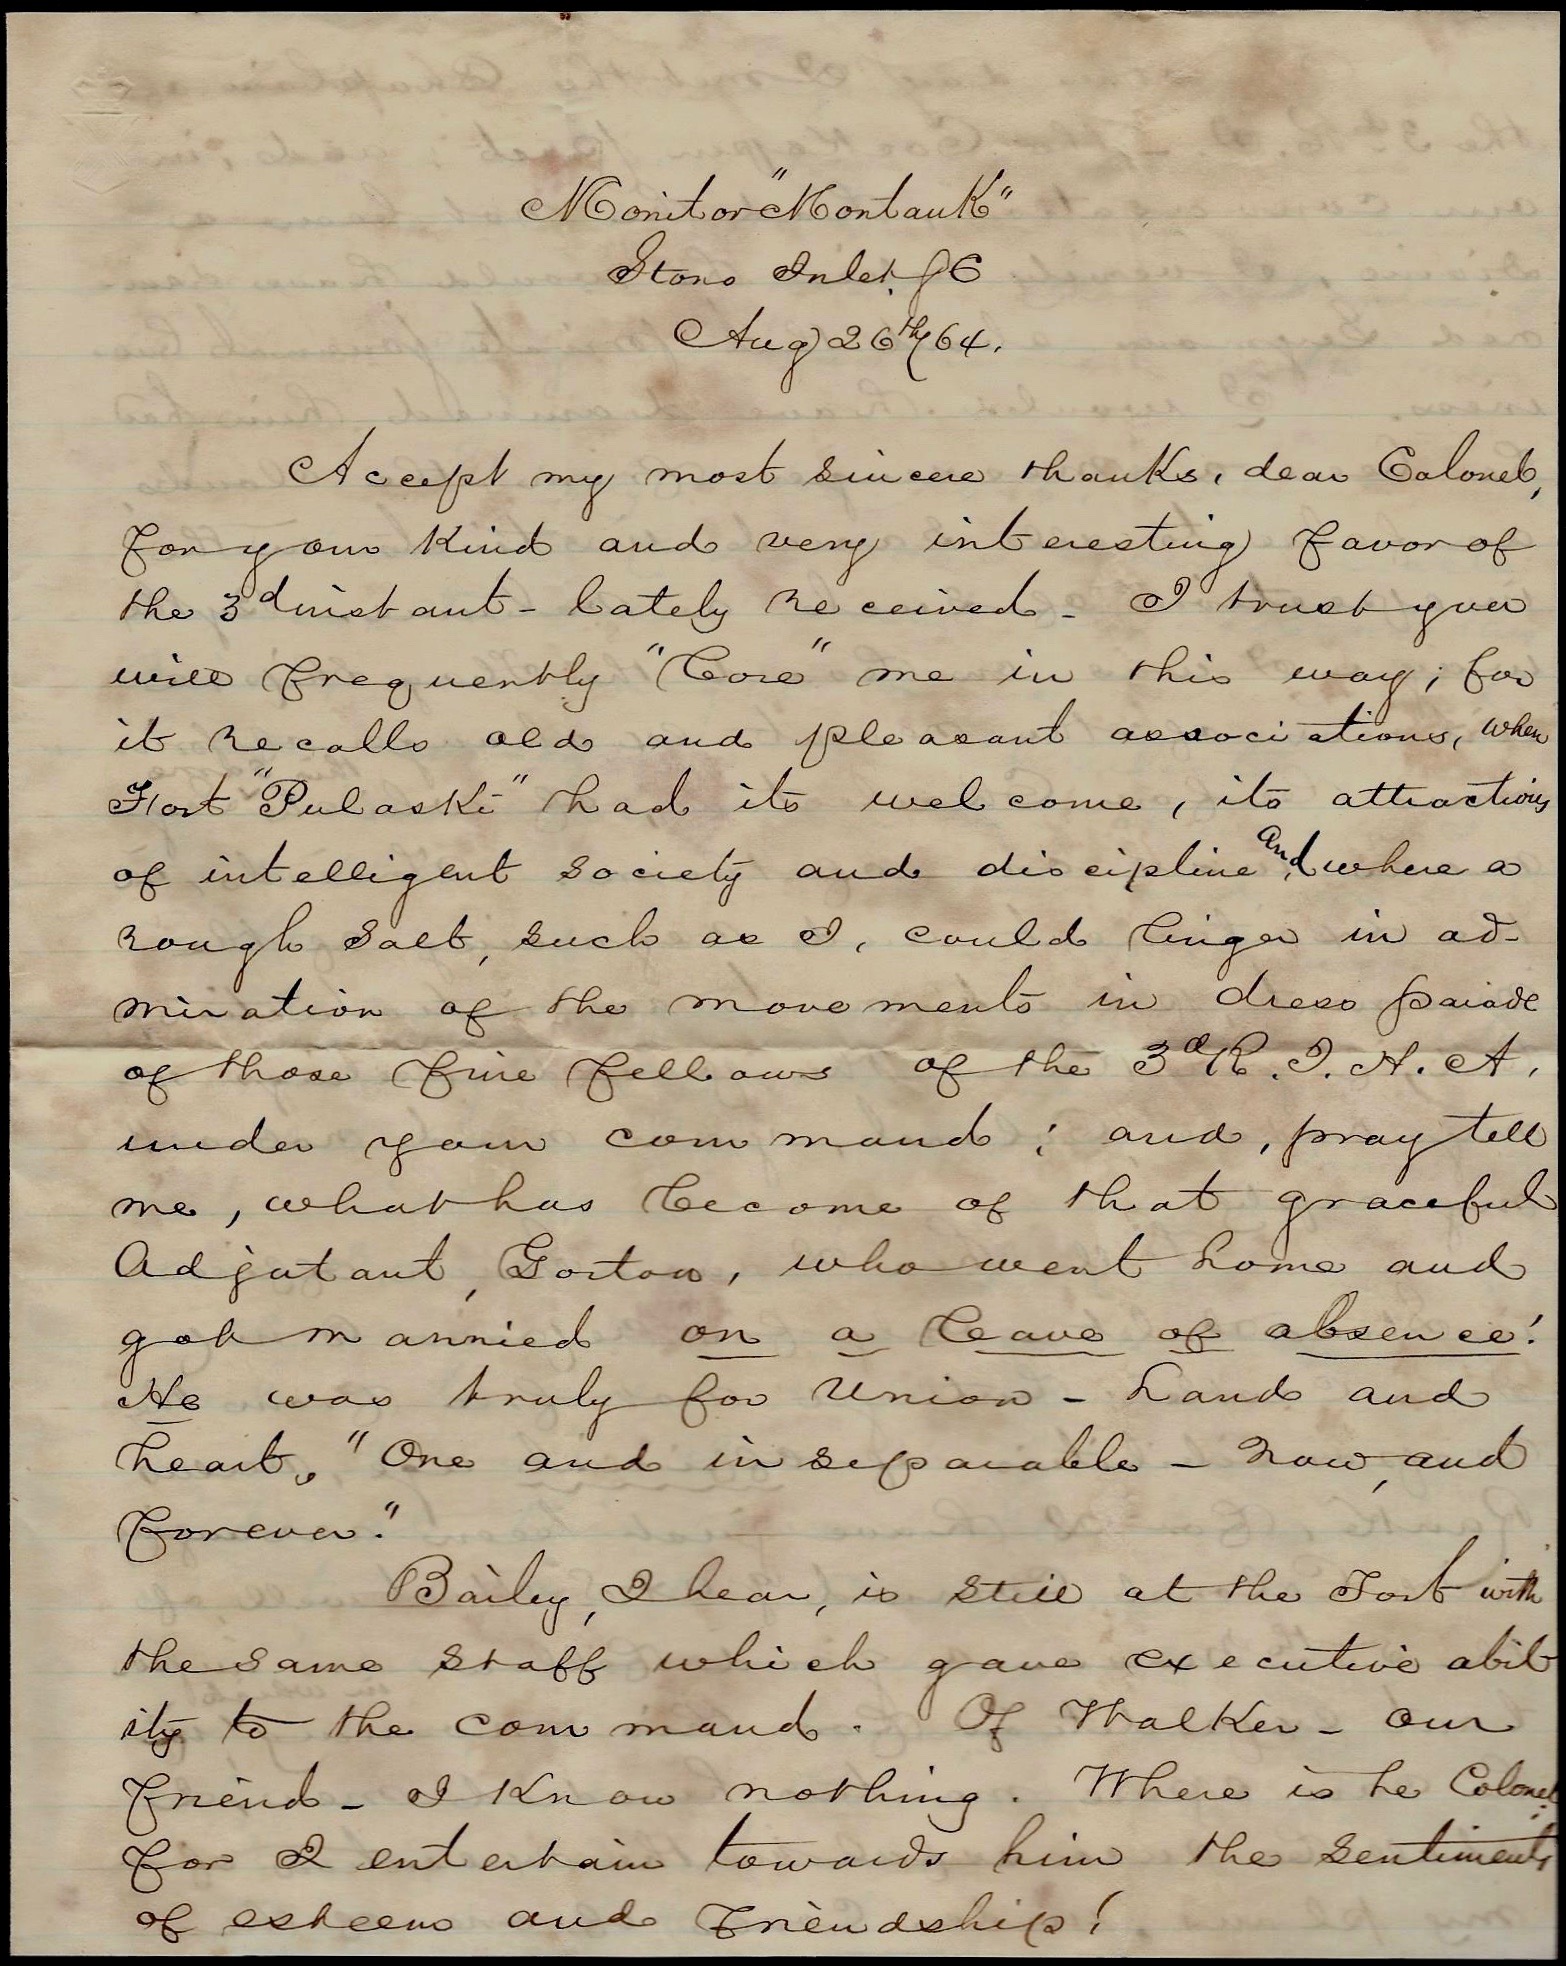 Monitor "Montauk"
Stono Inlet. S C
Aug 26th/64.
Accept my most sincere thanks, dear Colonel,
for your kind and very interesting favor of
the 3d instant - lately received - I trust you
will frequently "bore" me in this way; for
it recalls old and pleasant associations, when
Fort "Pulaski" had its welcome, its attractions
of intelligent society and discipline, and where a
rough salt, such as I, could linger in ad-
miration of the movements in dress parade
of those fine fellows of the 3d R. I. H. A.
under your command; and, pray tell
me, what has become of that graceful
Adjutant, Gorton, who went home and
got married on a leave of absence!
He was truly for Union - hand and
heart, "One and inseparable - now, and
forever."
Bailey, I hear, is still at the Fort with
the same staff which gave executive abil
ity to the command. Of Walker - our
friend - I know nothing. Where is he Colonel
for I entertain towards him the sentiments
of esteem and friendship!